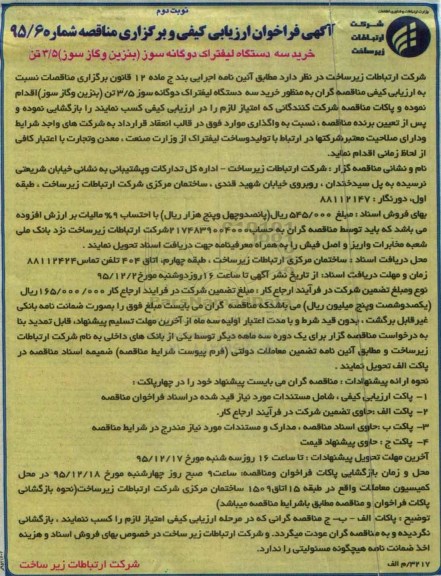 نوبت دوم
شرکت ارتباطات زیرساخت
آگهی فراخوان ارزیابی کیفی و برگزاری مناقصه شماره ۹۵/۶۰
خرید سه دستگاه لیفتراک دوگانه سوز (بنزین و گاز سوز) ۳/۵ تن
شرکت ارتباطات زیرساخت در نظر دارد مطابق آئین نامه اجرایی بند ج ماده ۱۲ قانون برگزاری مناقصات نسبت
به ارزیابی کیفی مناقصه گران به منظور خرید سه دستگاه لیفتراک دوگانه سوز ۳/۵ تن (بنزین وگاز سوز) اقدام
نموده و پاکات مناقصه شرکت کنندگانی که امتیاز لازم را در ارزیابی کیفی کسب نمایند را بازگشایی نموده و
پس از تعیین برنده مناقصه ، نسبت به واگذاری موارد فوق در قالب انعقاد قرارداد به شرکت های واجد شرایط
ودارای صلاحیت معتبرشرکتها در ارتباط با تولیدوساخت لیفتراک از وزارت صنعت ، معدن وتجارت با اعتبار کافی
از لحاظ زمانی اقدام نماید.
نام و نشانی مناقصه گزار : شرکت ارتباطات زیرساخت - اداره کل تدارکات وپشتیبانی به نشانی خیابان شریعتی
نرسیده به پل سیدخندان ، روبروی خیابان شهید قندی ، ساختمان مرکزی شرکت ارتباطات زیرساخت ، طبقه
اول، دورنگار : ۸۸۱۱۲۱۴۷
بهای فروش اسناد : مبلغ ۵۴۵/۰۰۰ ریال(پانصدوچهل وپنج هزار ریال) با احتساب ۹% مالیات بر ارزش افزوده
می باشد که باید توسط مناقصه گران به حساب ۲۱۷۴۸۳۹۰۰۴۰۰۰ شرکت ارتباطات زیرساخت نزد بانک ملی
شعبه مخابرات واریز و اصل فیش را به همراه معرفینامه جهت دریافت اسناد تحویل نمایند .
محل دریافت اسناد : ساختمان مرکزی ارتباطات زیرساخت ، طبقه چهارم، اتاق ۴۰۴ تلفن تماس ۸۸۱۱۲۴۲۴
زمان و مهلت دریافت اسناد: از تاریخ نشر آگهی تا ساعت ۱۶ روزدوشنبه مورخ ۹۵/۱۲/۲
نوع ومبلغ تضمین شرکت در فرآیند ارجاع کار : مبلغ تضمین شرکت در فرایند ارجاع کار ۱۶۵/۰۰۰/۰۰۰ ریال
(یکصدوشصت وپنج میلیون ریال) می باشدکه مناقصه گران می بایست مبلغ فوق را بصورت ضمانت نامه بانکی
غیرقابل برگشت ، بدون قید شرط و با مدت اعتبار اولیه سه ماه از آخرین مهلت تسلیم پیشنهاد، قابل تمدید بنا
به درخواست مناقصه گزار برای یک دوره سه ماهه دیگر توسط یکی از بانک های داخلی به نام شرکت ارتباطات
زیرساخت و مطابق آئین نامه تضمین معاملات دولتی (فرم پیوست شرایط مناقصه) ضمیمه اسناد مناقصه در
پاکت الف تحویل نمایند .
نحوه ارائه پیشنهادات : مناقصه گران می بایست پیشنهاد خود را در چهارپاکت :
۱- پاکت ارزیابی کیفی ، شامل مستندات مورد نیاز قید شده دراسناد فراخوان مناقصه
۲- پاکت الف :حاوی تضمین شرکت در فرآیند ارجاع کار.
۳- پاکت ب :حاوی اسناد مناقصه ، مدارک و مستندات مورد نیاز مندرج در شرایط مناقصه
۴- پاکت ج : حاوی پیشنهاد قیمت
آخرین مهلت تحویل پیشنهادات : تا ساعت ۱۶ روزسه شنبه مورخ ۹۵/۱۲/۱۷
محل و زمان بازگشایی پاکات فراخوان ومناقصه: ساعت۹ صبح روز چهارشنبه مورخ ۹۵/۱۲/۱۸ در محل
کمیسیون معاملات واقع در طبقه ۱۵ اتاق ۱۵۰۹ ساختمان مرکزی شرکت ارتباطات زیرساخت(نحوه بازگشائی
پاکات فراخوان و مناقصه مطابق باشرایط مناقصه میباشد)
توضیح : پاکات الف - ب- ج مناقصه گرانی که در مرحله ارزیابی کیفی امتیاز لازم را کسب ننمایند ، بازگشائی
نگردیده و به مناقصه گران عودت میگردد. و شرکت ارتباطات زیر ساخت در خصوص بهای فروش اسناد و هزینه
اخذ ضمانت نامه هیچگونه مسئولیتی را ندارد.
۳۲۱۷/م الف
شرکت ارتباطات زیر ساخت